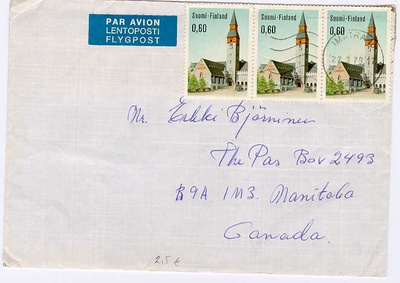 PAR AVION
LENTOPOSTI
FLYGPOST
Suomi-Finland
0,60
Suomi-Finland
0,60
Suomi-Finland
0,60
IMATRA
Mr. Erkki Björninen
The Pas Box 2493
R9A 1M3. Manitoba
Canada.
2,5 €